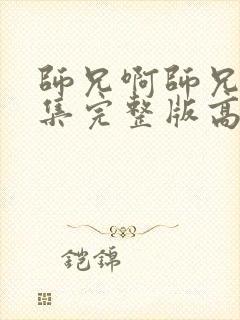 師兄啊師兄
集完整版高
鎧錦